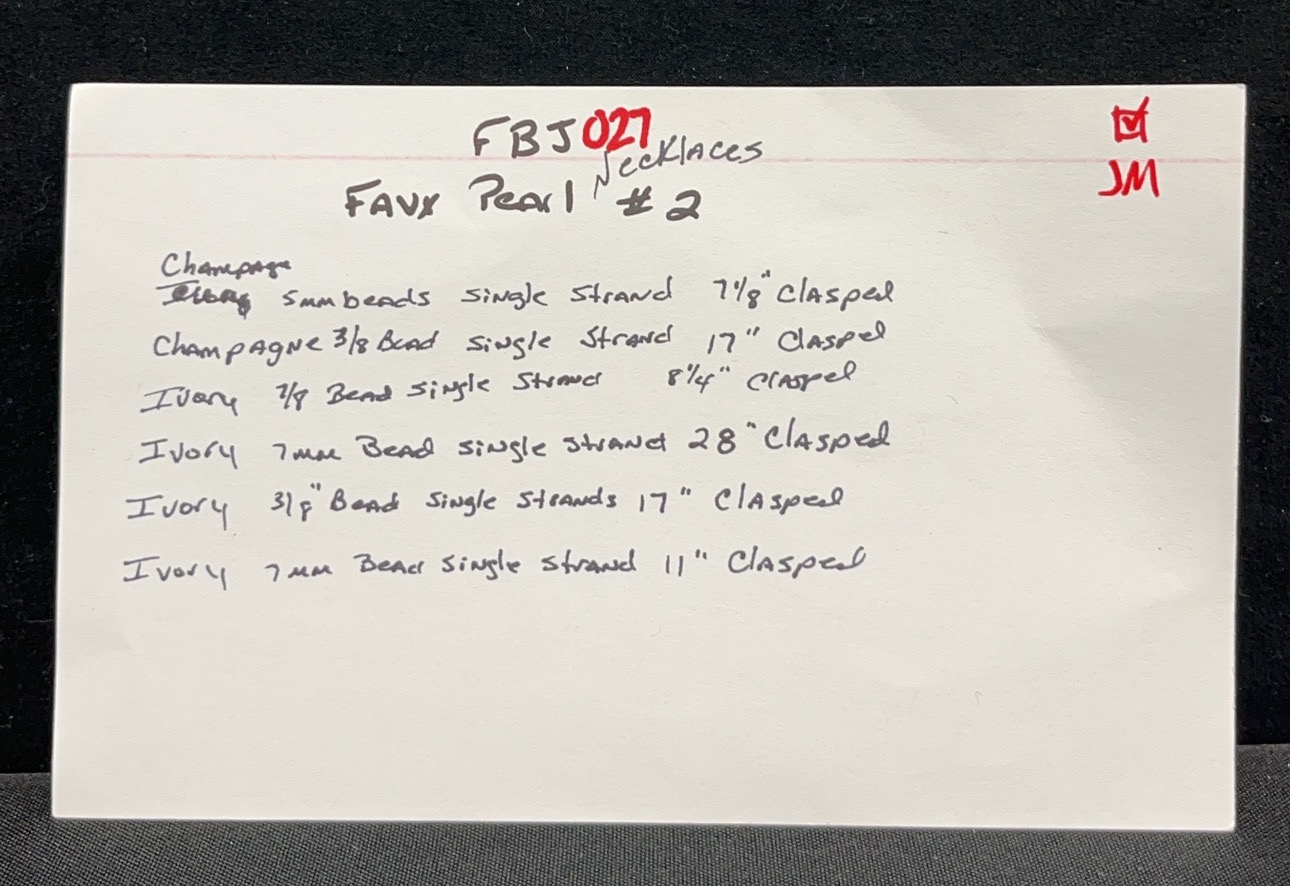 FBJ027
Necklaces
Faux Pearl #2
JM
Champage
5mm beads Single Strand 7 1/8" Clasped
Champagne 3/8 Bead Single Strand 17" Clasped
Ivory 7/8 Bead Single Strand 8 1/4" Clasped
Ivory 7mm Bead Single Strand 28" Clasped
Ivory 3/8" Bead Single Strands 17" Clasped
Ivory 7mm Bead Single Strand 11" Clasped